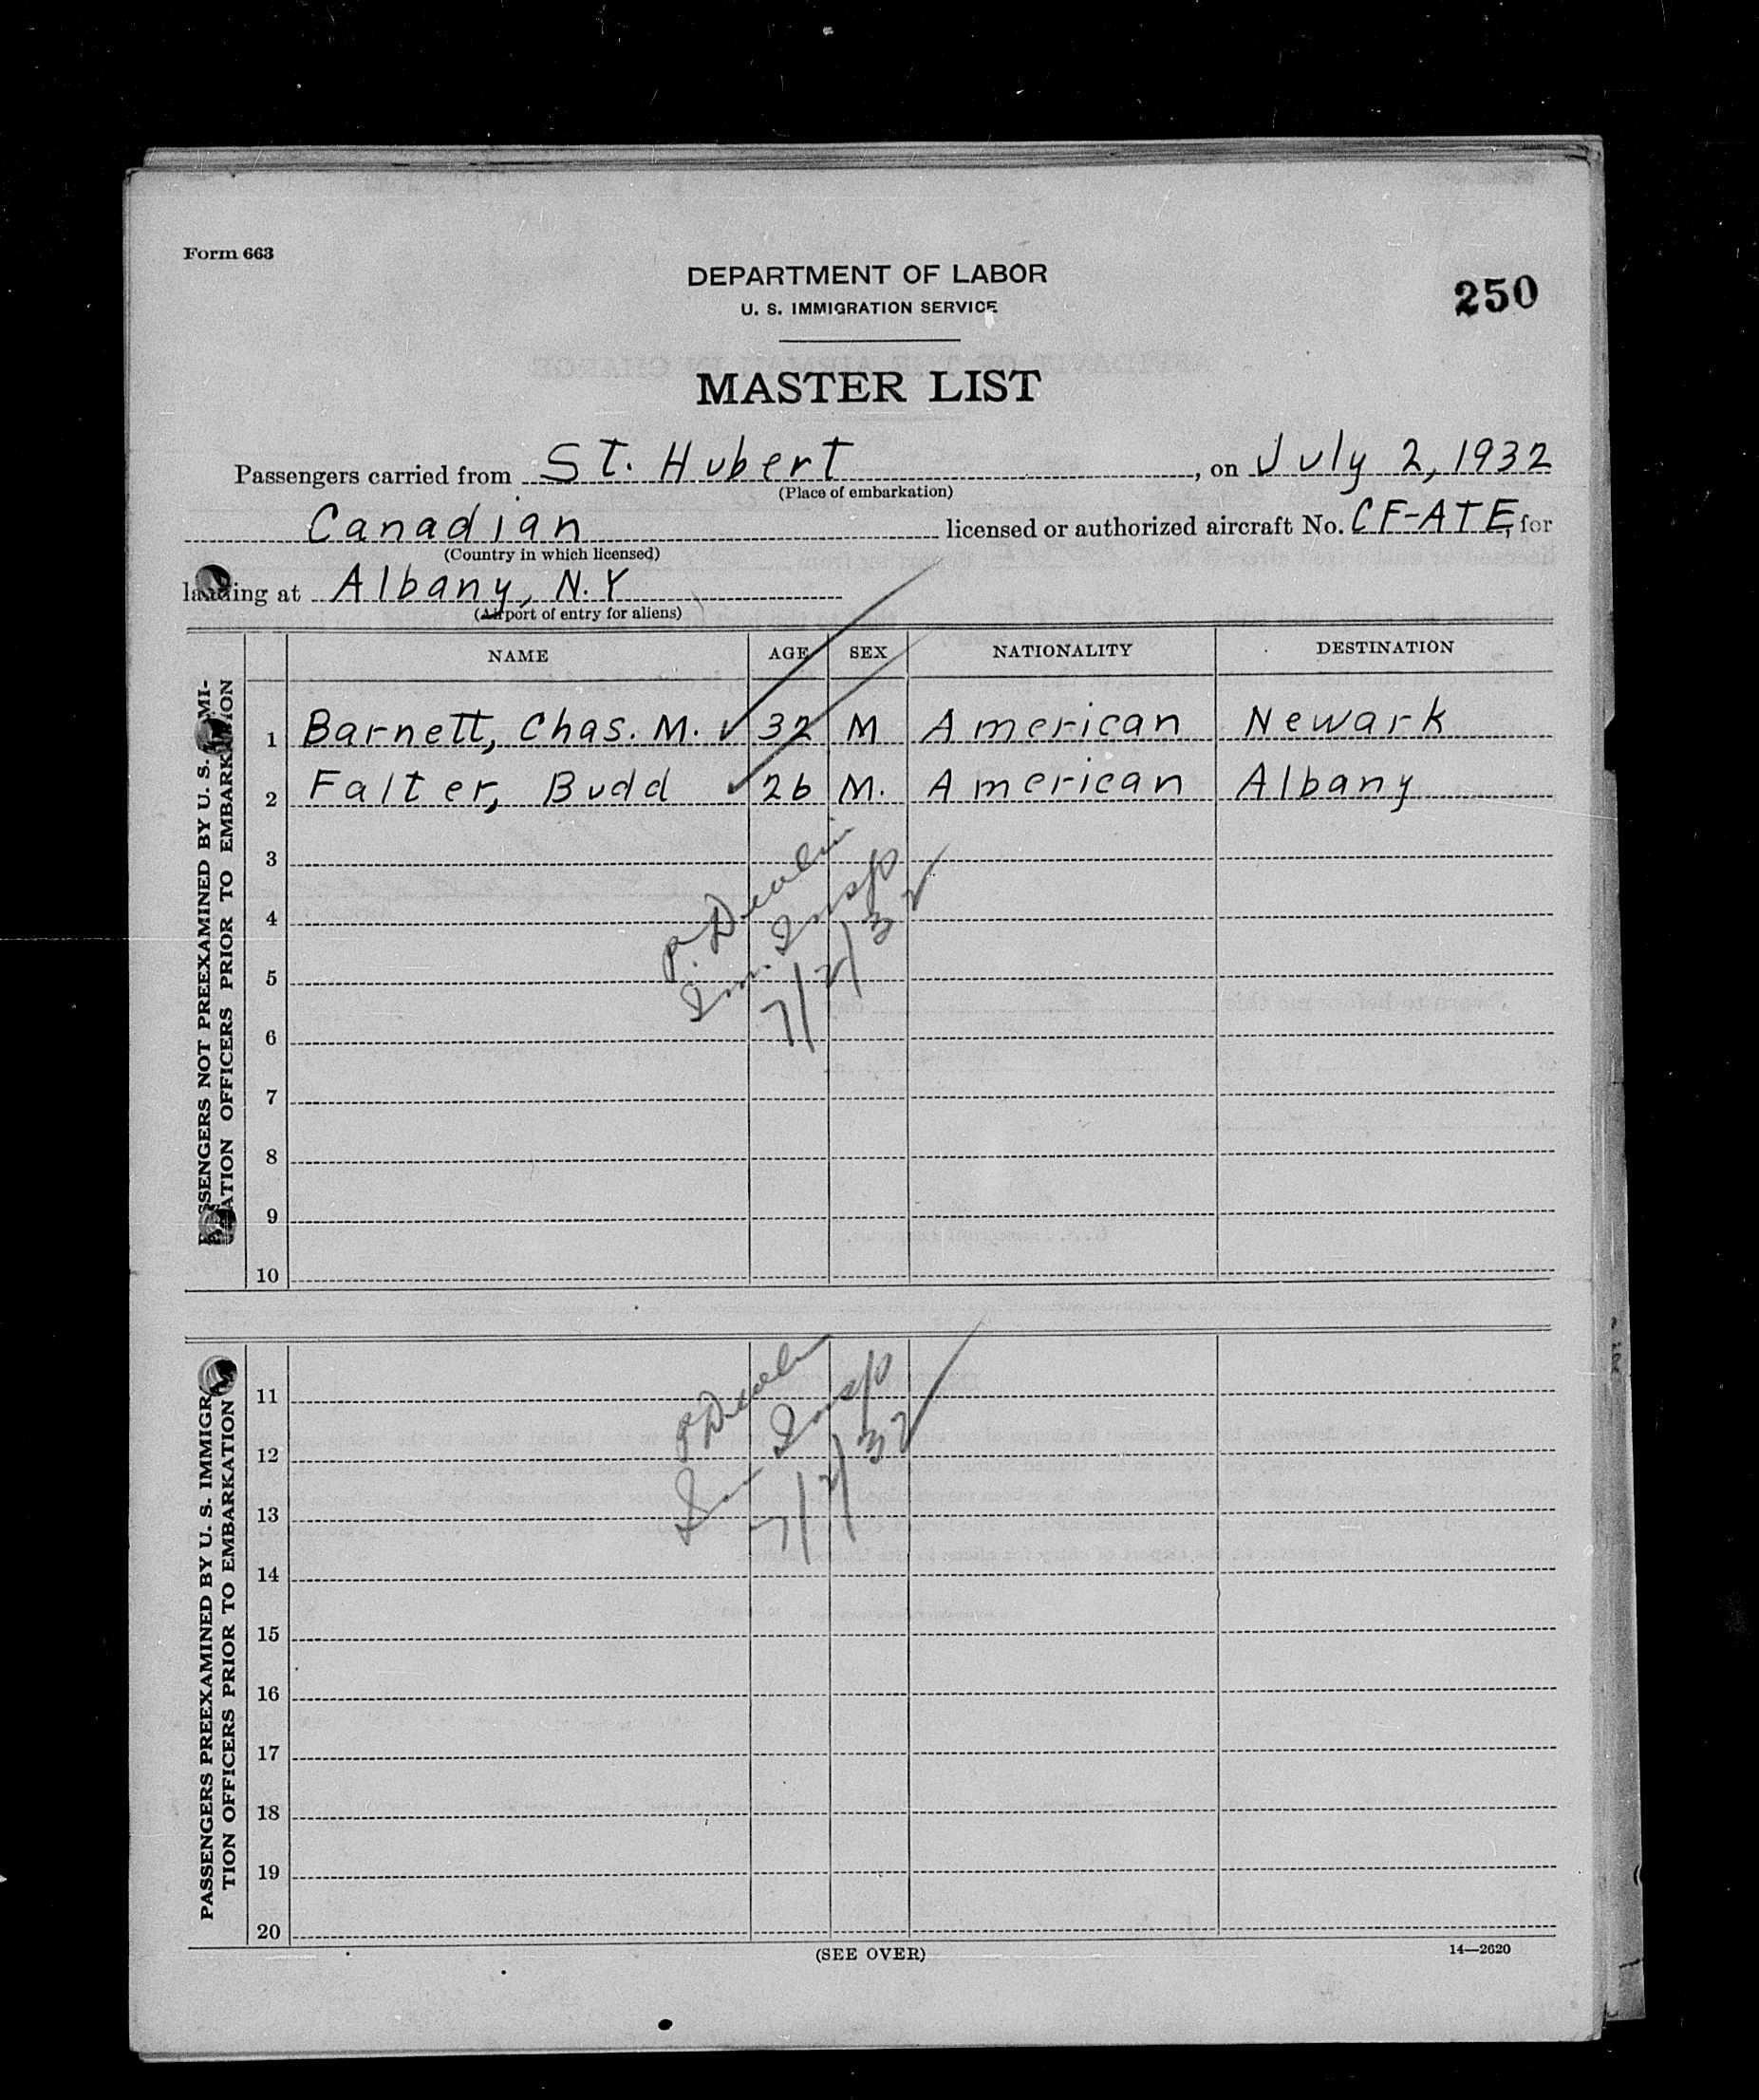 Form 663
DEPARTMENT OF LABOR
U. S. IMMIGRATION SERVICE
250
MASTER LIST
Passengers carried from St. Hubert, on July 2, 1932
(Place of embarkation)
Canadian licensed or authorized aircraft No. CF-ATE, for
(Country in which licensed)
landing at Albany, N.Y
(Airport of entry for aliens)
NAME AGE SEX NATIONALITY DESTINATION
PASSENGERS NOT PREEXAMINED BY U. S. IMMI-
GRATION OFFICERS PRIOR TO EMBARKATION
1 Barnett, Chas. M. ✓ 32 M American Newark
2 Falter, Budd ✓ 26 M. American Albany
3
4
5
6
7
8
9
10
P.
Im. Insp
7/2/32
PASSENGERS PREEXAMINED BY U. S. IMMIGRA-
TION OFFICERS PRIOR TO EMBARKATION
11
12
13
14
15
16
17
18
19
20
P
Im Insp
7/2/32
(SEE OVER)
14—2620